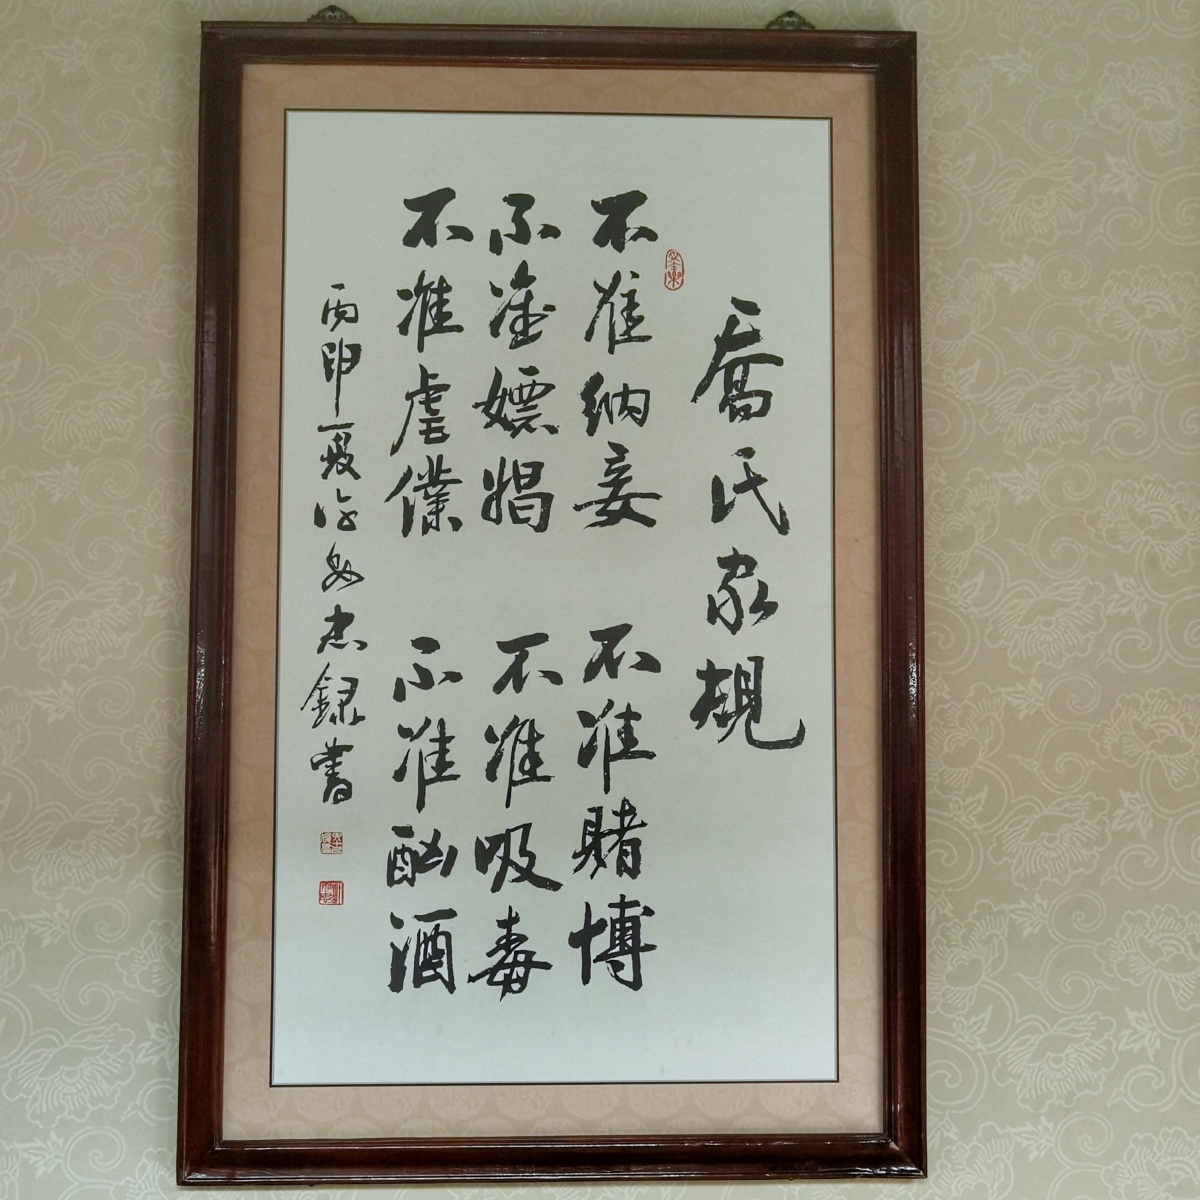 喬氏家規
不准納妾 不准賭博
不准嫖娼 不准吸毒
不准虐僕 不准酗酒
丙申夏 杰錄書